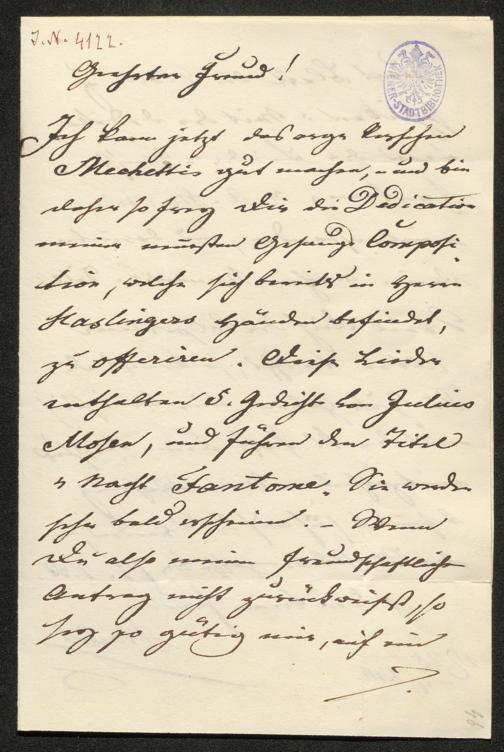 I. N. 4122.
WIENER-STADTBIBLIOTHEK
Geehrter Freund!
Ich kann jetzt das arge Versehen
Mechettis gut machen, und bin
daher so frey Dir die Dedication
meiner neuesten Gesangs Composi-
tion, welche sich bereits in Herrn
Haslingers Händen befindet,
zu offeriren. Diese Lieder
enthalten 5. Gedichte von Julius
Mosen, und führen den Titel
"Nacht Fantome". Sie werden
sehr bald erscheinen. – Wenn
Du also meinen freundschaftlichen
Antrag nicht zurückweisest, so
sey so gütig mir, auf ein